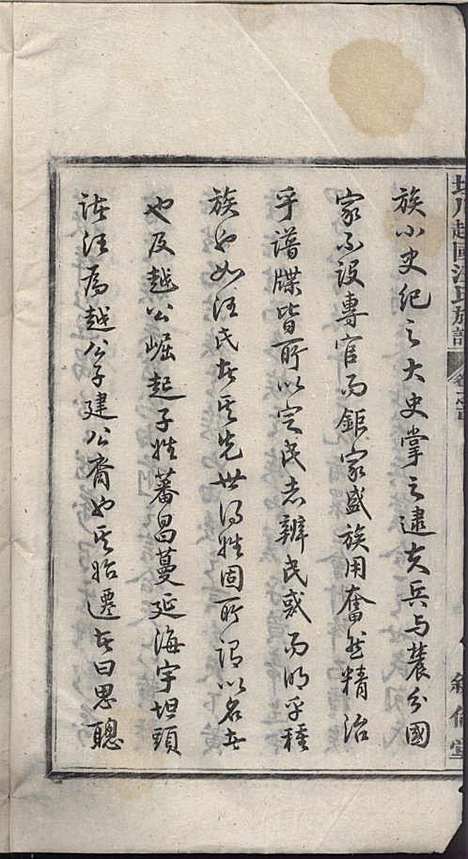 族小史纪之大史掌之逮夫兵与農分國
家不设專官而鉅家盛族用奮然精治
乎譜牒皆所以定民志辨民惑而明乎種
族也如汪氏者其先世得姓固所谓以名者
也及越公崛起子姓蕃昌蔓延海宇坦頭
諸汪為越公子建公裔也其始遷者曰思聰
川越國汪氏族譜
敘倫堂